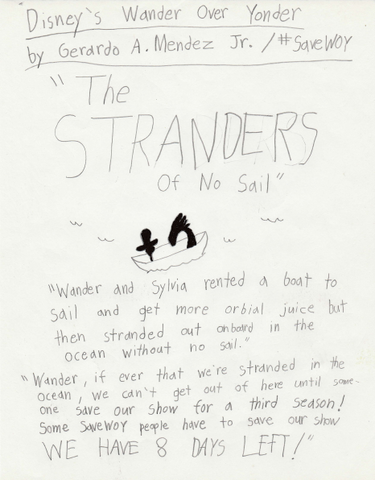 Disney's Wander Over Yonder
by Gerardo A. Mendez Jr. / #SaveWOY
"The
STRANDERS
Of No Sail"
"Wander and Sylvia rented a boat to
sail and get more orbial juice but
then stranded out onboard in the
ocean without no sail."
"Wander, if ever that we're stranded in the
ocean, we can't get out of here until some-
one save our show for a third season!
Some SaveWOY people have to save our show
WE HAVE 8 DAYS LEFT!"